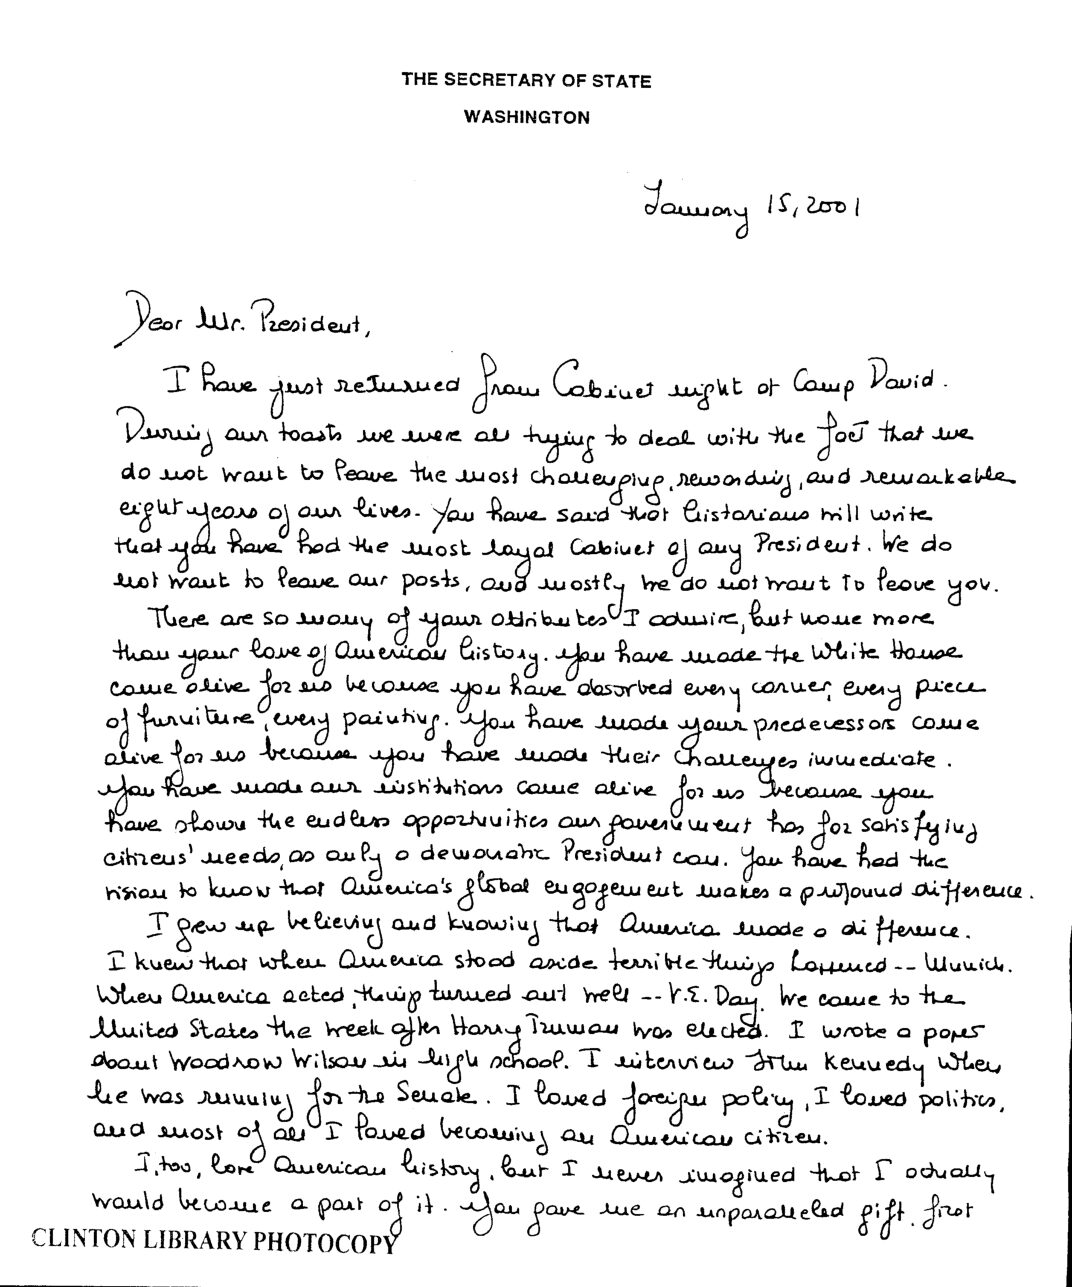 THE SECRETARY OF STATE
WASHINGTON
January 15, 2001
Dear Mr. President,
I have just returned from Cabinet night at Camp David.
During our toasts we were all trying to deal with the fact that we
do not want to leave the most challenging, rewarding, and remarkable
eight years of our lives. You have said that historians will write
that you have had the most loyal Cabinet of any President. We do
not want to leave our posts, and mostly we do not want to leave you.
There are so many of your attributes I admire, but none more
than your love of American history. You have made the White House
come alive for us because you have absorbed every corner, every piece
of furniture, every painting. You have made your predecessors come
alive for us because you have made their challenges immediate.
You have made our institutions come alive for us because you
have shown the endless opportunities our government has for satisfying
citizens' needs, as only a democratic President can. You have had the
vision to know that America's global engagement makes a profound difference.
I grew up believing and knowing that America made a difference.
I knew that when America stood aside terrible things happened -- Munich.
When America acted, things turned out well -- V.E. Day. We came to the
United States the week after Harry Truman was elected. I wrote a paper
about Woodrow Wilson in high school. I interview John Kennedy when
he was running for the Senate. I loved foreign policy, I loved politics,
and most of all I loved becoming an American citizen.
I, too, love American history, but I never imagined that I actually
would become a part of it. You gave me an unparalleled gift, first
CLINTON LIBRARY PHOTOCOPY